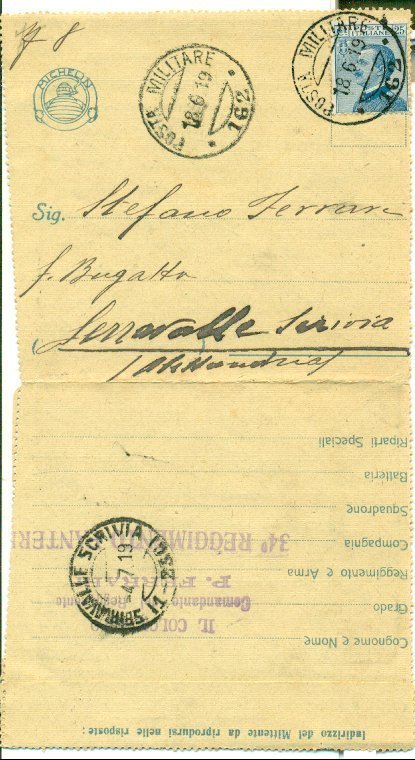 № 8
MICHELIN
POSTA MILITARE
18.6.19
162
POSTA MILITARE
18.6.19
162
ITALIANE
25
Sig. Stefano Ferrari
f. Bugatto
Serravalle Scrivia
(Alessandria)
Indirizzo del Mittente da riprodursi nelle risposte:
Cognome e Nome
Grado
Reggimento e Arma
Compagnia
Squadrone
Batteria
Riparti Speciali
IL COLO
Comandante
P. FERRA
34º REGGIMENTO FANTERI
SERRAVALLE SCRIVIA
7.19